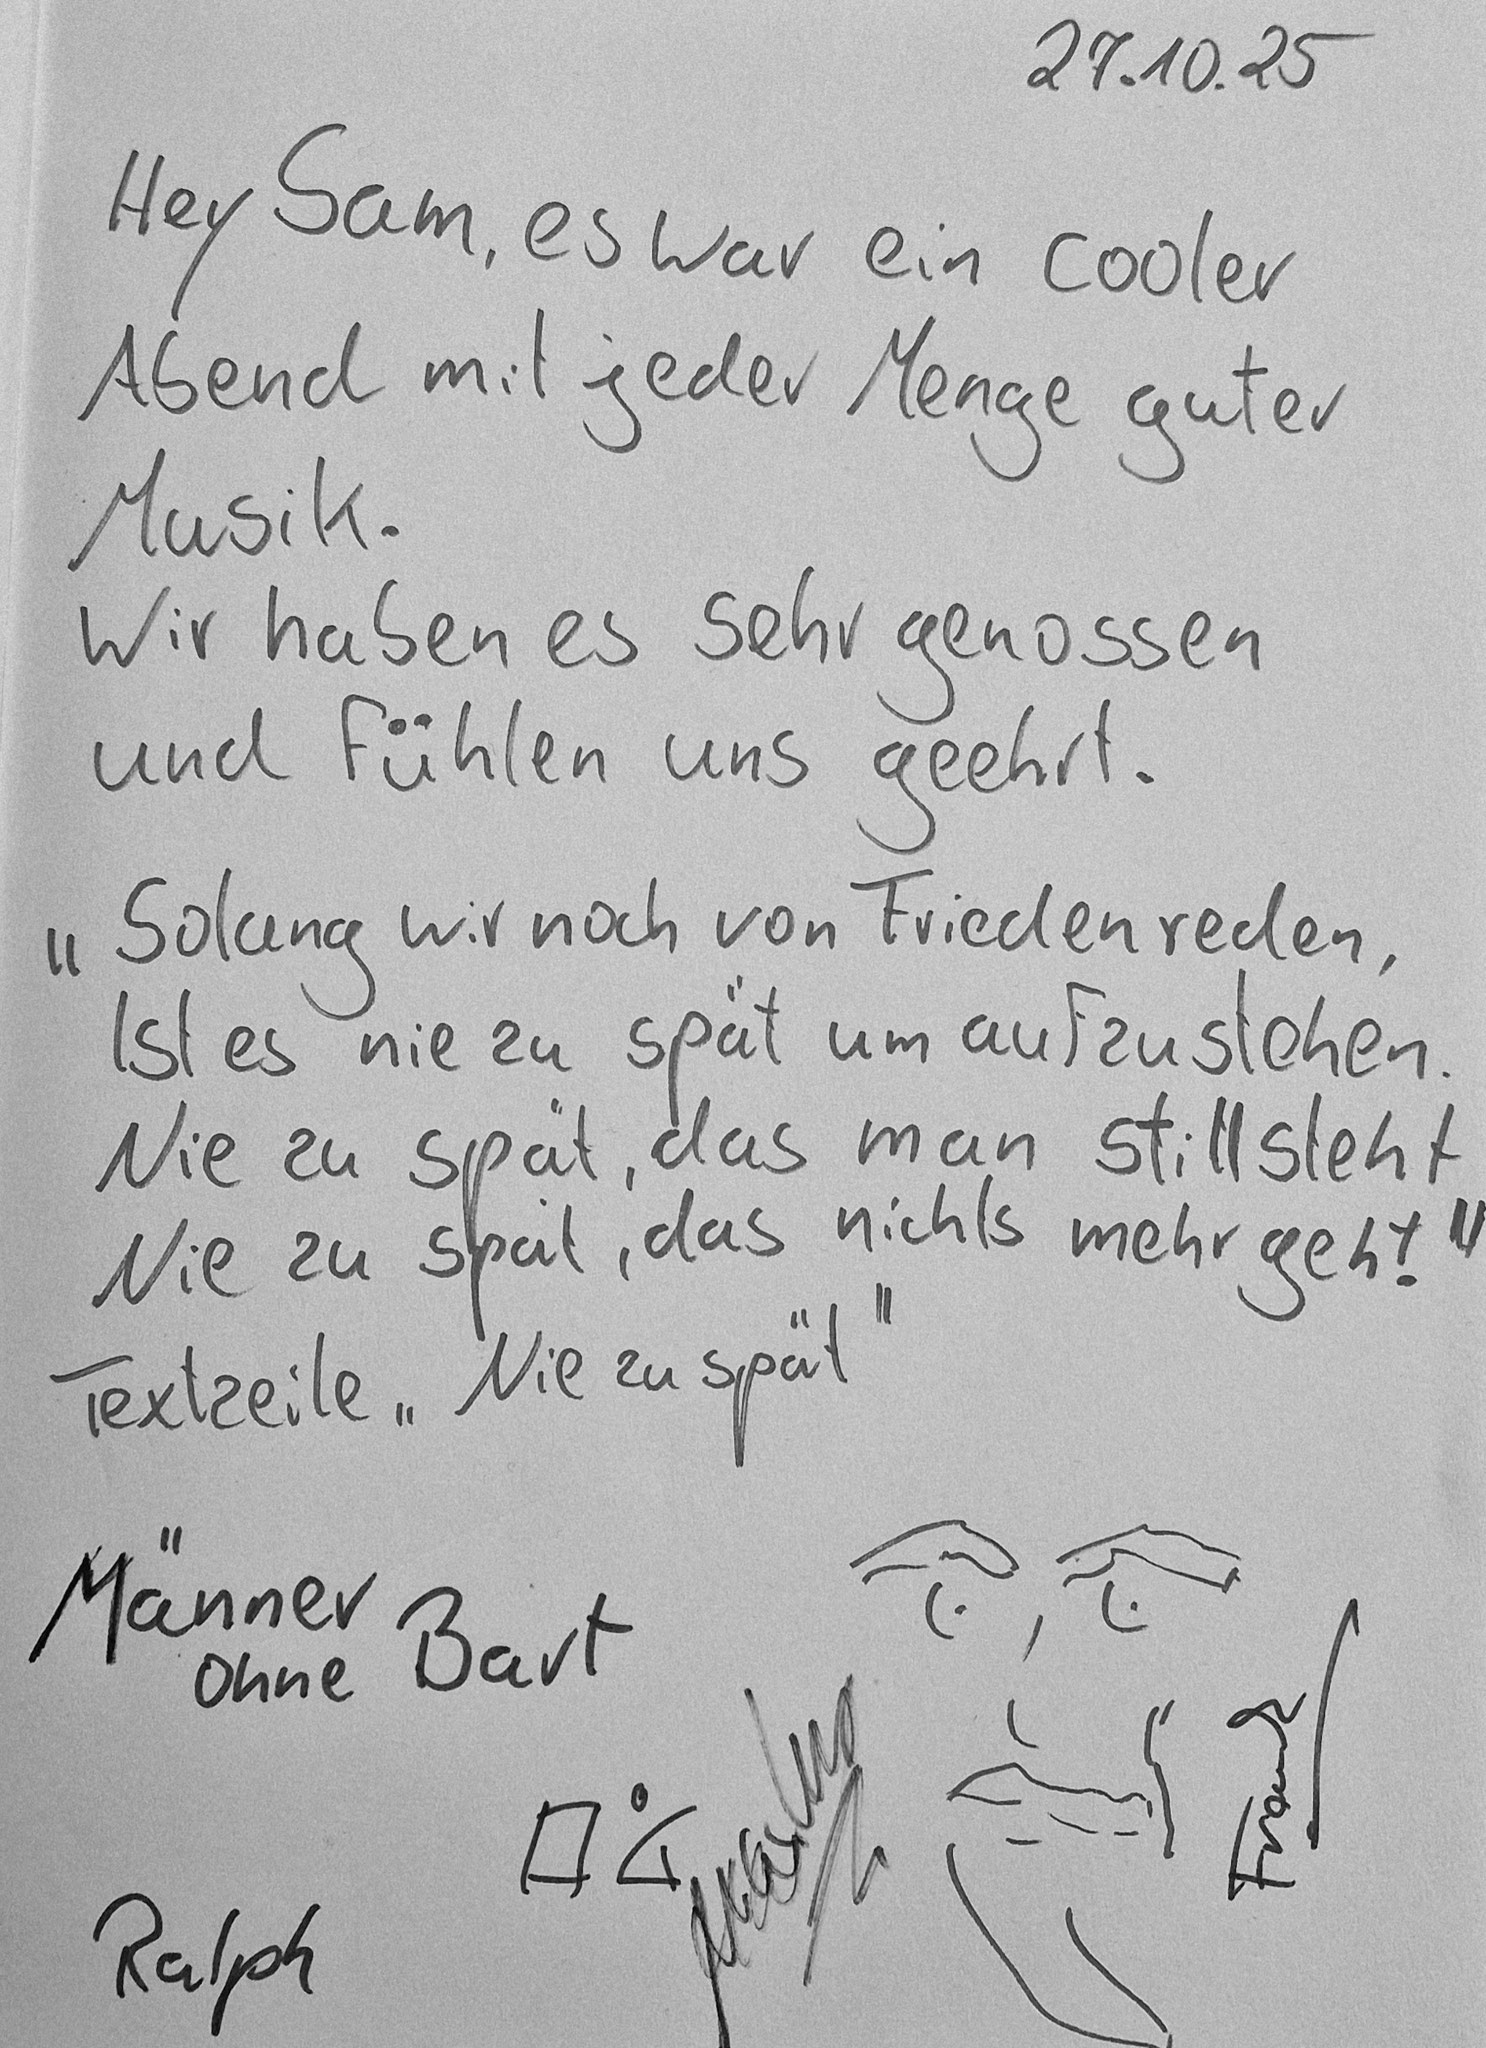 27.10.25
Hey Sam, es war ein cooler
Abend mit jeder Menge guter
Musik.
Wir haben es sehr genossen
und fühlen uns geehrt.
„Solang wir noch von Frieden reden,
Ist es nie zu spät um aufzustehen.
Nie zu spät, das man stillsteht
Nie zu spät, das nichts mehr geht!"
Textzeile „Nie zu spät"
Männer
ohne Bart
Ralph